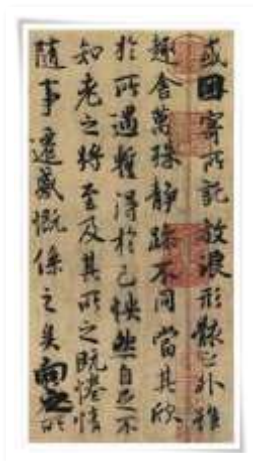 或因寄所託放浪形骸之外雖
趣舍萬殊靜躁不同當其欣
於所遇暫得於己怏然自足不
知老之將至及其所之既惓情
隨事遷感慨係之矣向之所